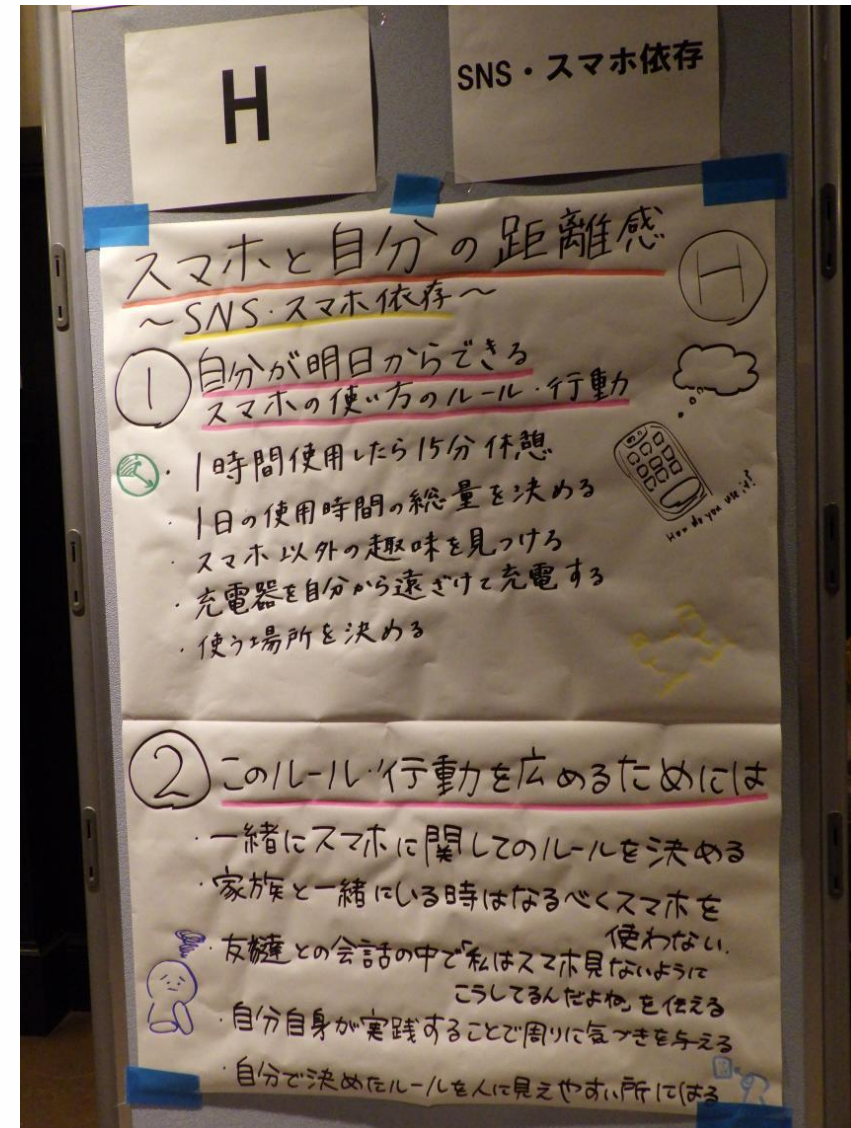 H
SNS・スマホ依存
スマホと自分の距離感
H
～SNS・スマホ依存～
1 自分が明日からできる
スマホの使い方のルール・行動
・1時間使用したら15分休憩
・1日の使用時間の総量を決める
・スマホ以外の趣味を見つける
・充電器を自分から遠ざけて充電する
・使う場所を決める
How do you use it?
2 このルール・行動を広めるためには
・一緒にスマホに関してのルールを決める
・家族と一緒にいる時はなるべくスマホを
使わない.
・友達との会話の中で「私はスマホ見ないように
こうしてるんだよね」を伝える
・自分自身が実践することで周りに気づきを与える
・自分で決めたルールを人に見えやすい所にはる